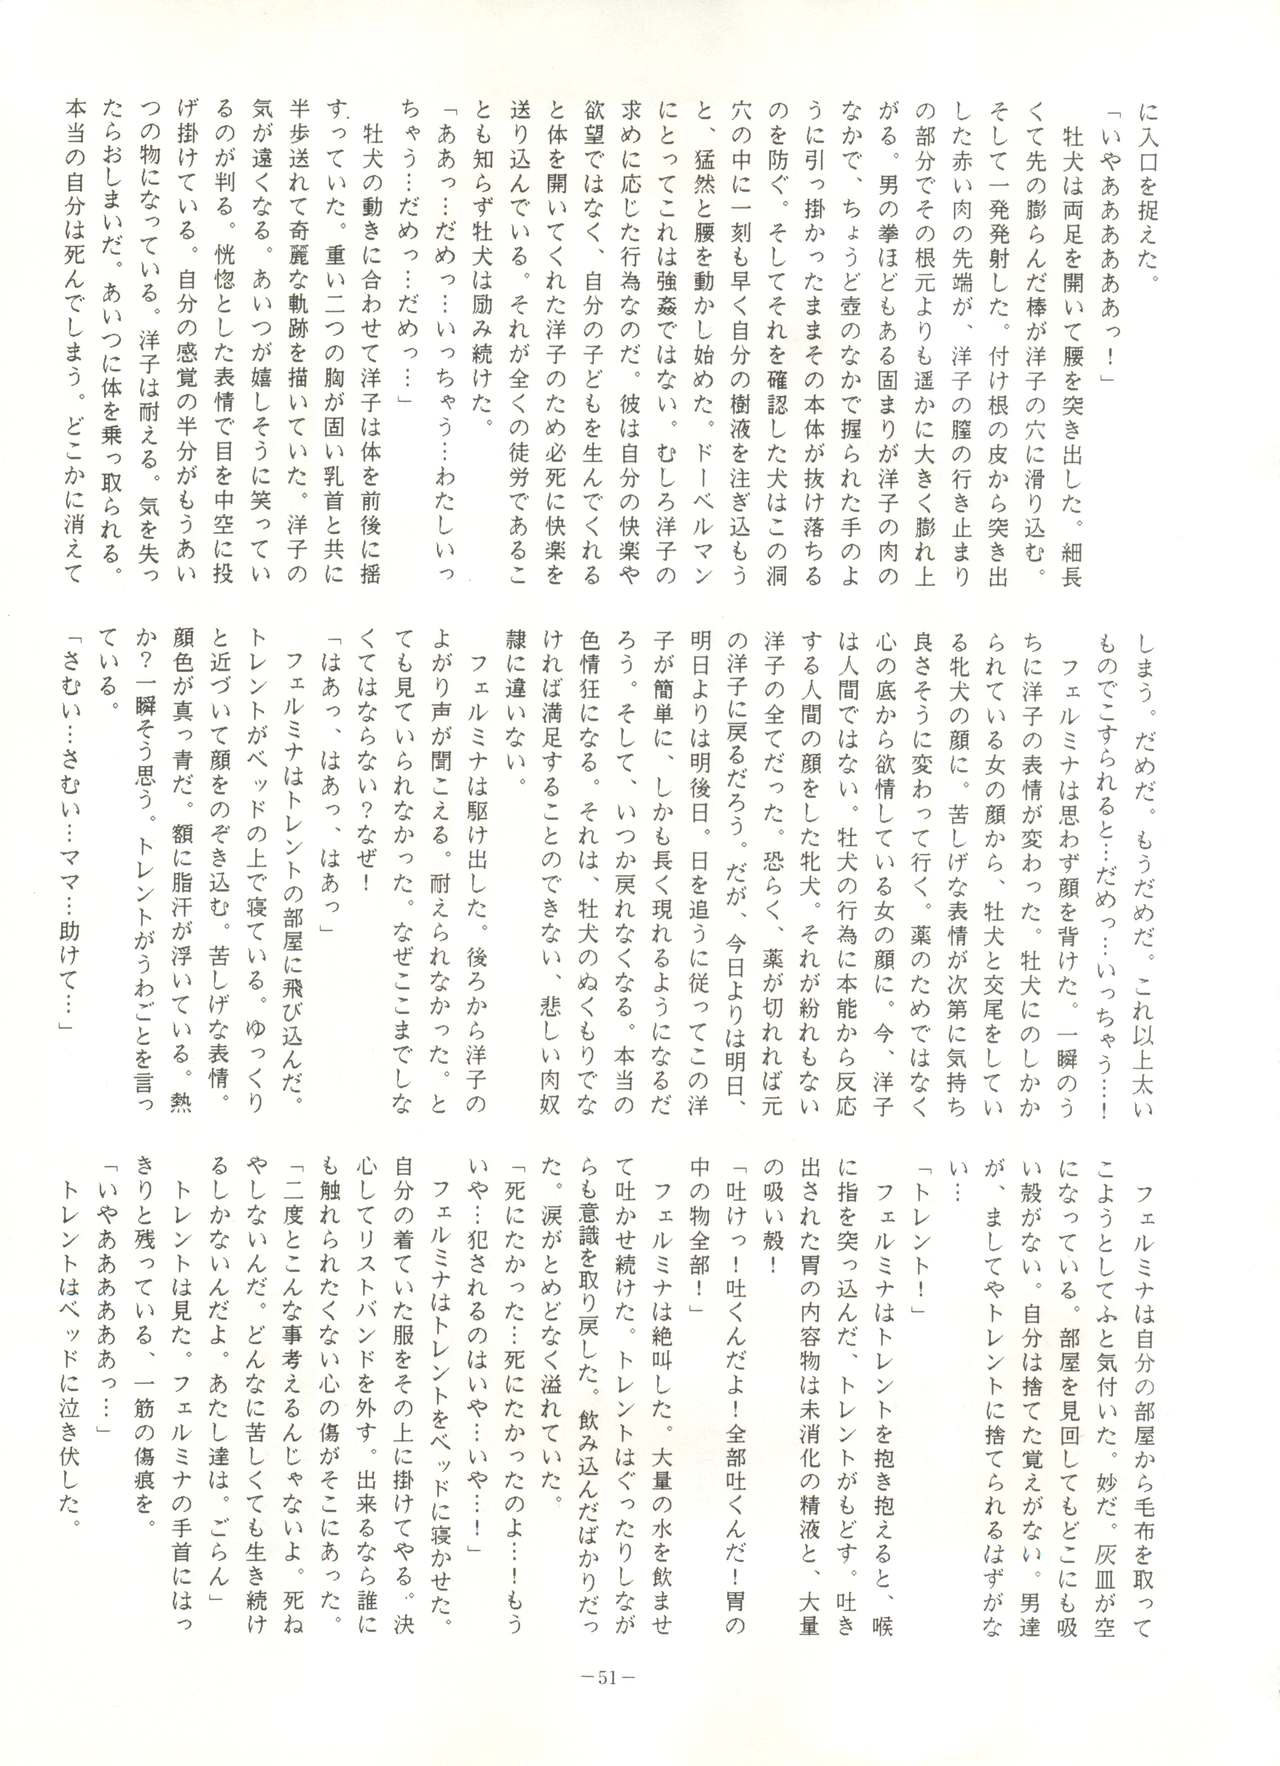 に入口を捉えた。
「いやあああああぁっ！」
牡犬は両足を開いて腰を突き出した。細長
くて先の膨らんだ棒が洋子の穴に滑り込む。
そして一発発射した。付け根の皮から突き出
した赤い肉の先端が、洋子の膣の行き止まり
の部分でその根元よりも遥かに大きく膨れ上
がる。男の拳ほどもある固まりが洋子の肉の
なかで、ちょうど壺のなかで握られた手のよ
うに引っ掛かったままその本体が抜け落ちる
のを防ぐ。そしてそれを確認した犬はこの洞
穴の中に一刻も早く自分の樹液を注ぎ込もう
と、猛然と腰を動かし始めた。ドーベルマン
にとってこれは強姦ではない。むしろ洋子の
求めに応じた行為なのだ。彼は自分の快楽や
欲望ではなく、自分の子どもを生んでくれる
と体を開いてくれた洋子のため必死に快楽を
送り込んでいる。それが全くの徒労であるこ
とも知らず牡犬は励み続けた。
「ああっ…だめっ…いっちゃう…わたしいっ
ちゃう…だめっ…だめっ…」
牡犬の動きに合わせて洋子は体を前後に揺
すっていた。重い二つの胸が固い乳首と共に
半歩送れて奇麗な軌跡を描いていた。洋子の
気が遠くなる。あいつが嬉しそうに笑ってい
るのが判る。恍惚とした表情で目を中空に投
げ掛けている。自分の感覚の半分がもうあい
つの物になっている。洋子は耐える。気を失っ
たらおしまいだ。あいつに体を乗っ取られる。
本当の自分は死んでしまう。どこかに消えて
しまう。だめだ。もうだめだ。これ以上太い
ものでこすられると…だめっ…いっちゃう…！
フェルミナは思わず顔を背けた。一瞬のう
ちに洋子の表情が変わった。牡犬にのしかか
られている女の顔から、牡犬と交尾をしてい
る牝犬の顔に。苦しげな表情が次第に気持ち
良さそうに変わって行く。薬のためではなく
心の底から欲情している女の顔に。今、洋子
は人間ではない。牡犬の行為に本能から反応
する人間の顔をした牝犬。それが紛れもない
洋子の全てだった。恐らく、薬が切れれば元
の洋子に戻るだろう。だが、今日よりは明日、
明日よりは明後日。日を追うに従ってこの洋
子が簡単に、しかも長く現れるようになるだ
ろう。そして、いつか戻れなくなる。本当の
色情狂になる。それは、牡犬のぬくもりでな
ければ満足することのできない、悲しい肉奴
隷に違いない。
フェルミナは駆け出した。後ろから洋子の
よがり声が聞こえる。耐えられなかった。と
ても見ていられなかった。なぜここまでしな
くてはならない？なぜ！
「はあっ、はあっ、はあっ」
フェルミナはトレントの部屋に飛び込んだ。
トレントがベッドの上で寝ている。ゆっくり
と近づいて顔をのぞき込む。苦しげな表情。
顔色が真っ青だ。額に脂汗が浮いている。熱
か？一瞬そう思う。トレントがうわごとを言っ
ている。
「さむい…さむい…ママ…助けて…」
フェルミナは自分の部屋から毛布を取って
こようとしてふと気付いた。妙だ。灰皿が空
になっている。部屋を見回してもどこにも吸
い殻がない。自分は捨てた覚えがない。男達
が、ましてやトレントに捨てられるはずがな
い…
「トレント！」
フェルミナはトレントを抱き抱えると、喉
に指を突っ込んだ、トレントがもどす。吐き
出された胃の内容物は未消化の精液と、大量
の吸い殻！
「吐けっ！吐くんだよ！全部吐くんだ！胃の
中の物全部！」
フェルミナは絶叫した。大量の水を飲ませ
て吐かせ続けた。トレントはぐったりしなが
らも意識を取り戻した。飲み込んだばかりだっ
た。涙がとめどなく溢れていた。
「死にたかった…死にたかったのよ…！もう
いや…犯されるのはいや…いや…！」
フェルミナはトレントをベッドに寝かせた。
自分の着ていた服をその上に掛けてやる。決
心してリストバンドを外す。出来るなら誰に
も触れられたくない心の傷がそこにあった。
「二度とこんな事考えるんじゃないよ。死ね
やしないんだ。どんなに苦しくても生き続け
るしかないんだよ。あたし達は。ごらん」
トレントは見た。フェルミナの手首にはっ
きりと残っている、一筋の傷痕を。
「いやああああああっ…」
トレントはベッドに泣き伏した。
－51－